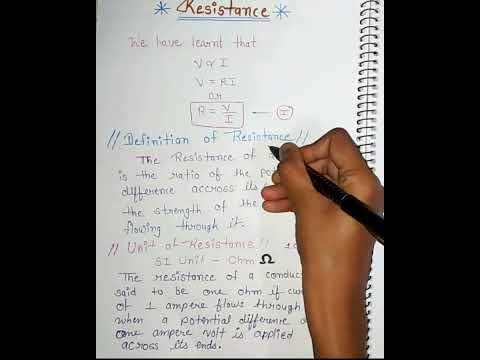 * Resistance *
We have learnt that
V ∝ I
V = RI
or
R = V/I — (I)
// Definition of Resistance //
The Resistance of a
is the ratio of the
difference accross its
the strength of the
flowing through it.
// Unit of Resistance //
SI Unit - Ohm Ω
The resistance of a
said to be one ohm if
of 1 ampere flows through
when a potential difference
one ampere volt is applied
across its ends.